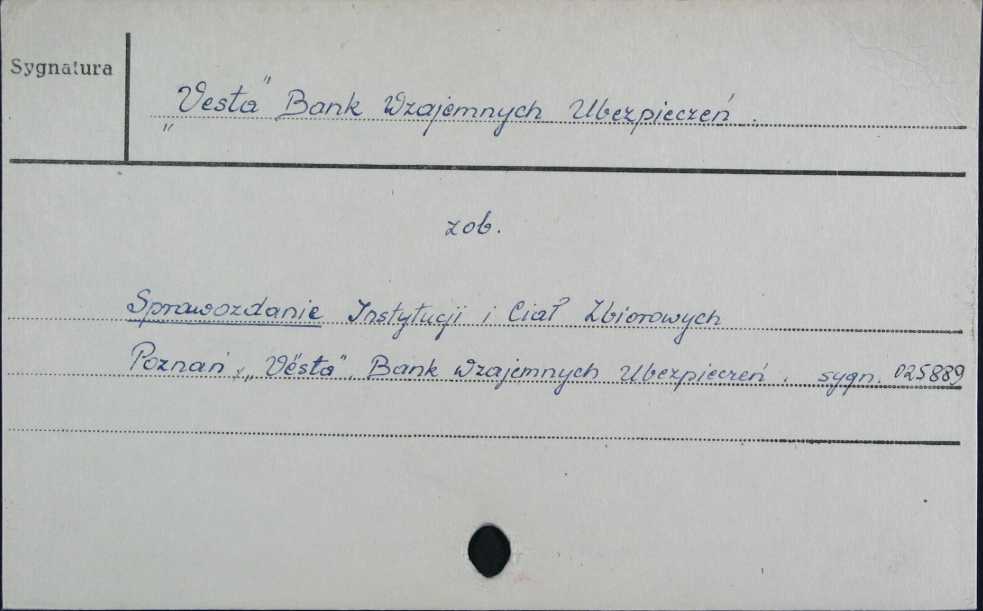 Sygnatura
„Vesta" Bank Wzajemnych Ubezpieczeń.
zob.
Sprawozdanie Instytucji i Ciał Zbiorowych
Poznań, „Vesta". Bank Wzajemnych Ubezpieczeń. sygn. 025889